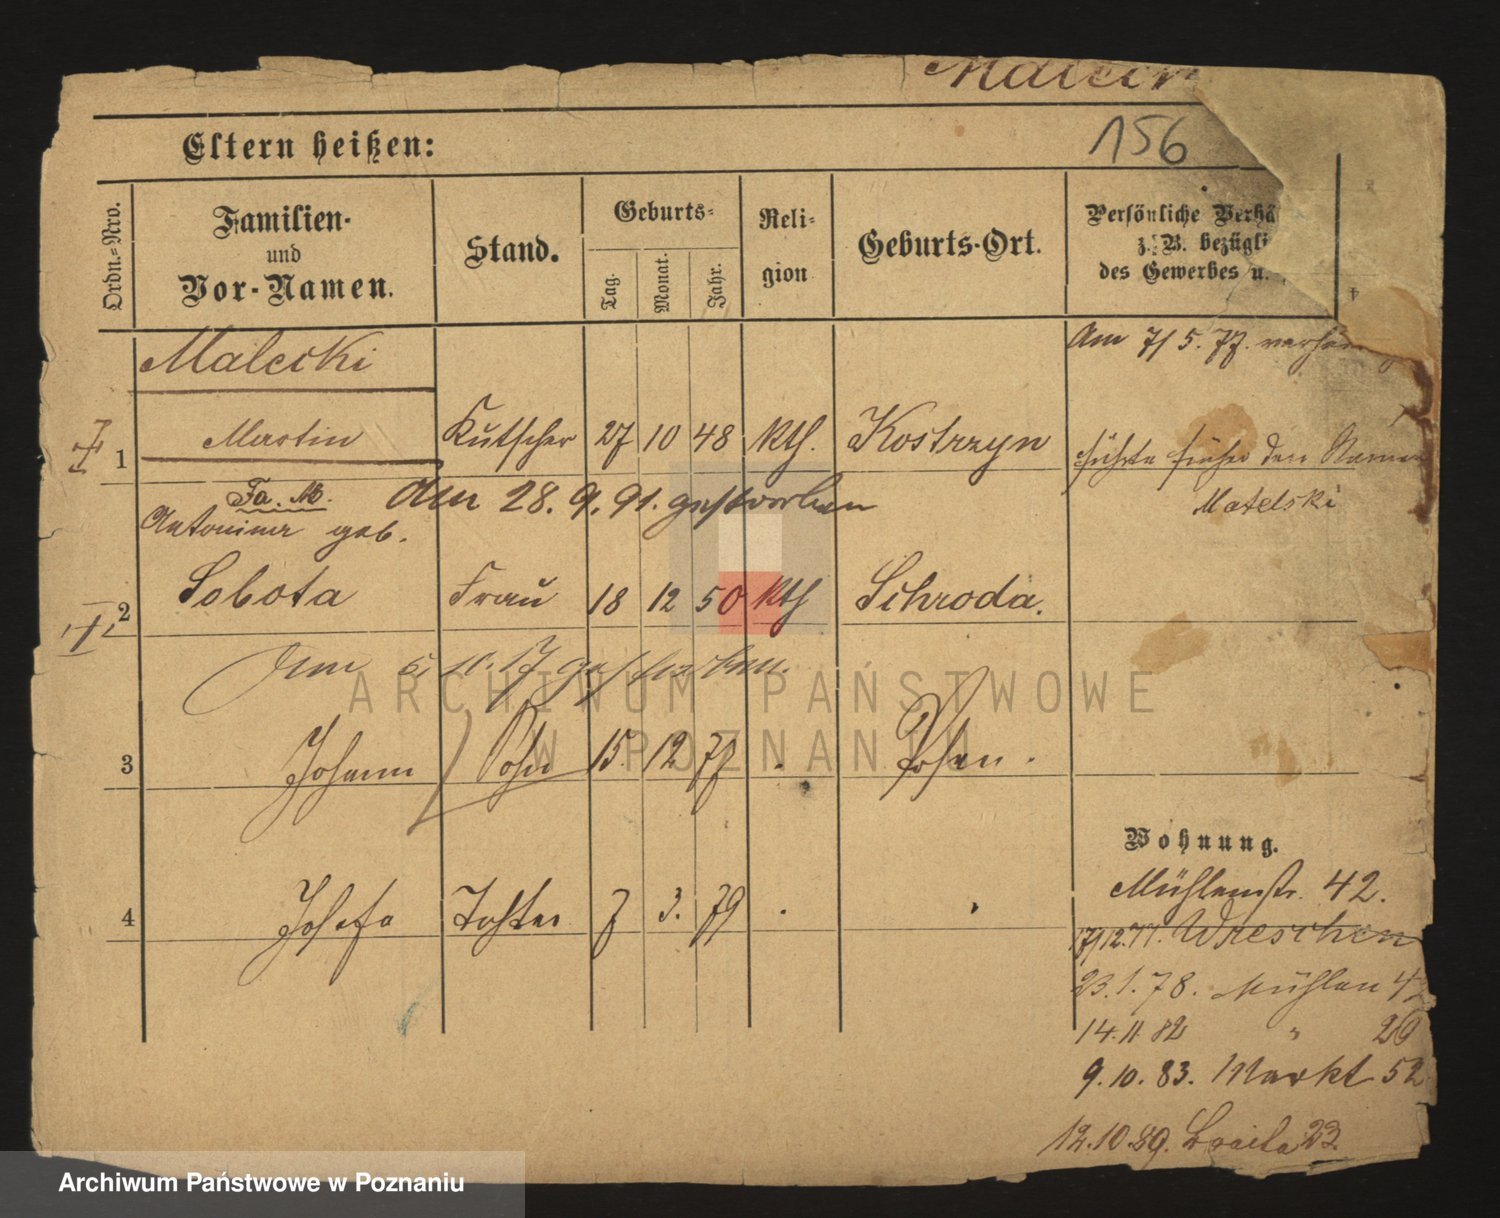 156
Eltern heißen:
Ordn.-Nro.
Familien-
und
Vor-Namen.
Stand.
Geburts-
Tag.
Monat.
Jahr.
Reli-
gion
Geburts-Ort.
Persönliche Verhä
z. B. bezügli
des Gewerbes u.
Malecki
Am 7/5. 77.
1 Martin Kutscher 27 10 48 kth. Kostrzyn führte früher den Namen
Matelski
Fa. M.
Am 28. 9. 91. gestorben
Antonina geb.
2 Sobota Frau 18 12 50 kth Schroda.
Am 5. 11. 17 gestorben.
3 Johann Sohn 15. 12 77 . Posen.
4 Josefa Tochter 7 3. 79 .
Wohnung.
Mühlenstr. 42.
17/12.77. Wreschen
23. 1. 78. Mühlen 42
14. 11. 82 " 26
9. 10. 83. Markt 52
12. 10. 89. Breite 23.
ARCHIWUM PAŃSTWOWE
W POZNANIU
Archiwum Państwowe w Poznaniu